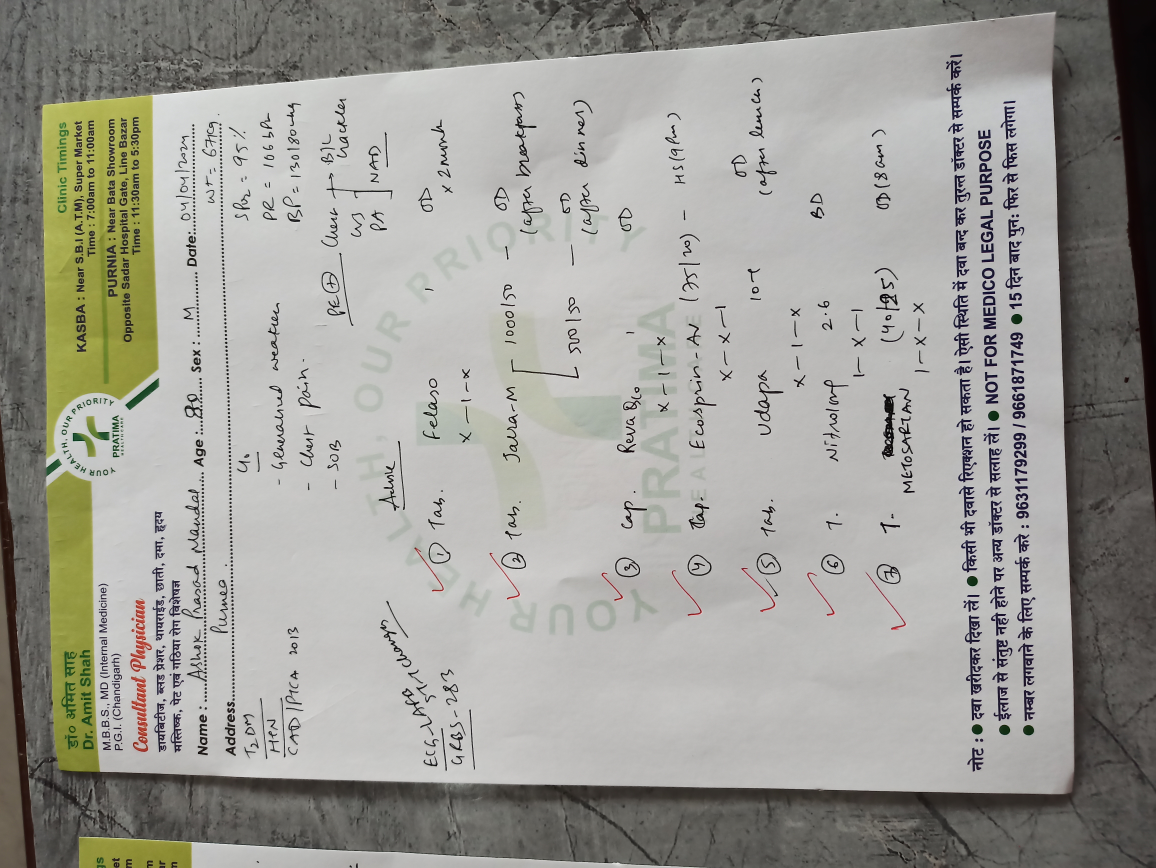 डॉ० अमित साह
Dr. Amit Shah
M.B.B.S., MD (Internal Medicine)
P.G.I. (Chandigarh)
Consultant Physician
डायबिटीज, ब्लड प्रेशर, थायराईड, छाती, दमा, हृदय
मस्तिष्क, पेट एवं गठिया रोग विशेषज्ञ
YOUR HEALTH, OUR PRIORITY
PRATIMA
Clinic Timings
KASBA : Near S.B.I (A.T.M), Super Market
Time : 7:00am to 11:00am
PURNIA : Near Bata Showroom
Opposite Sadar Hospital Gate, Line Bazar
Time : 11:30am to 5:30pm
Name : Ashok Prasad Mandal Age : 80 Sex : M Date: 04/04/2024
Address Purnea WT = 67kg
T2DM
HTN
CAD/PTCA 2013
C/o
- Generalised weakness
- Chest Pain.
- SOB
SPO2 = 95%
PR = 106 bpm
BP = 130/80 mmHg
Chest → B/L
CVS
PA ] NAD
ECG-
GRBS - 283
Advise
① Tab. Feleso OD
x-1-x x 2 month
② Tab. Janra-M 1000/50 - OD
(after breakfast)
500/50 - OD
(after dinner)
③ Cap. OD
x-1-x
④ Ecosprin-AV (75/20) - HS (9pm)
x-x-1
⑤ Tab. Udapa 10-1 OD
x-1-x (after lunch)
⑥ T. Nitrolong 2.6 BD
1-x-1
⑦ T. METOSARTAN (40/25) OD (8am)
1-x-x
YOUR HEALTH, OUR PRIORITY
PRATIMA
HEALTHCARE
नोट : ● दवा खरीदकर दिखा लें। ● किसी भी दवासे रिएक्शन हो सकता है। ऐसी स्थिति में दवा बन्द कर तुरन्त डॉक्टर से सम्पर्क करें।
● ईलाज से संतुष्ट नहीं होने पर अन्य डॉक्टर से सलाह लें। ● NOT FOR MEDICO LEGAL PURPOSE
● नम्बर लगवाने के लिए सम्पर्क करे : 9631179299 / 9661871749 ● 15 दिन बाद पुनः फिर से फिस लगेगा।